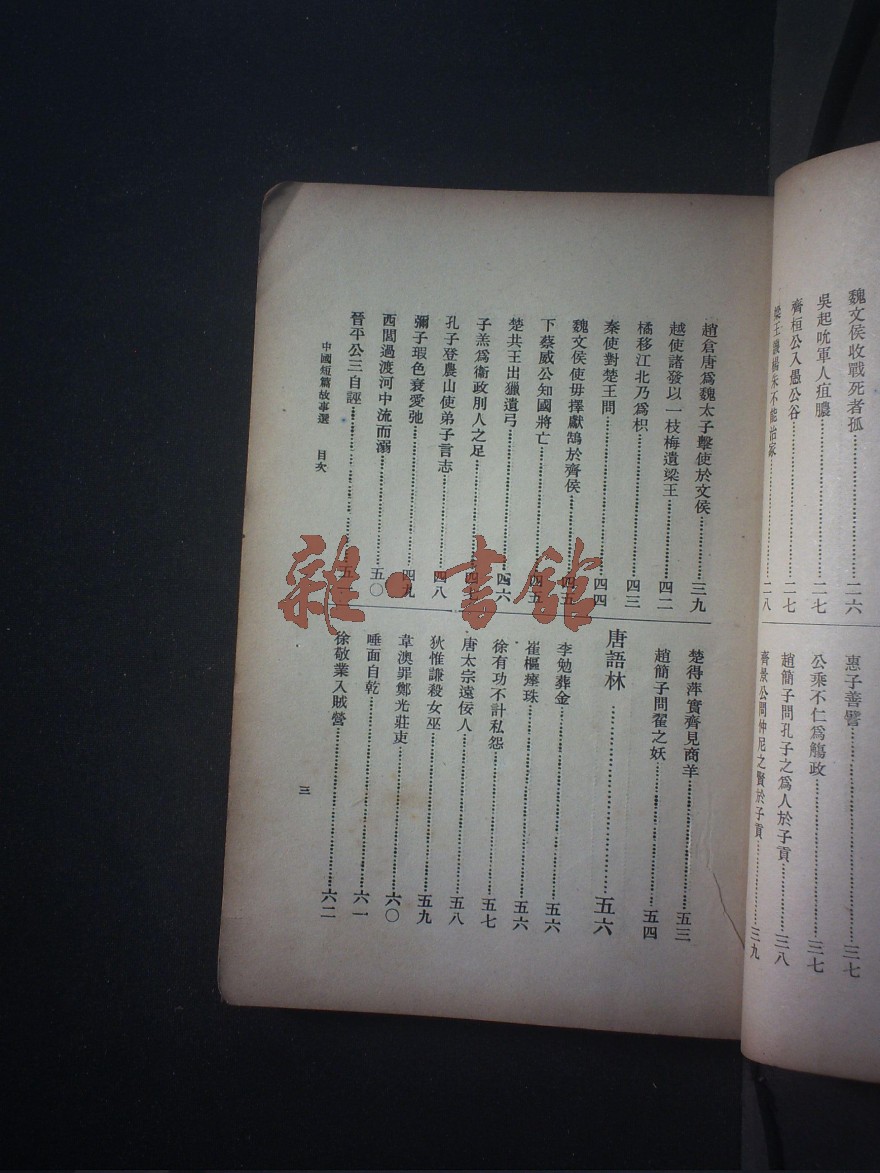 魏文侯收戰死者孤……二六
吳起吮軍人疽膿……二七
齊桓公入愚公谷……二七
梁王譏楊朱不能治家……二八
惠子善譬……三七
公乘不仁爲觴政……三七
趙簡子問孔子之爲人於子貢……三八
齊景公問仲尼之賢於子貢……三九
趙倉唐爲魏太子擊使於文侯……三九
越使諸發以一枝梅遺梁王……四二
橘移江北乃爲枳……四三
秦使對楚王問……四四
魏文侯使毋擇獻鵠於齊侯……四五
下蔡威公知國將亡……四五
楚共王出獵遺弓……四六
子羔爲衞政刖人之足……四七
孔子登農山使弟子言志……四八
彌子瑕色衰愛弛……四九
西閭過渡河中流而溺……五〇
晉平公三自誣……五
楚得萍實齊見商羊……五三
趙簡子問翟之妖……五四
唐語林……五六
李勉葬金……五六
崔樞瘞珠……五六
徐有功不計私怨……五七
唐太宗遠佞人……五八
狄惟謙殺女巫……五九
韋澳罪鄭光莊吏……六〇
唾面自乾……六一
徐敬業入賊營……六二
中國短篇故事選 目次
三
雜·書館